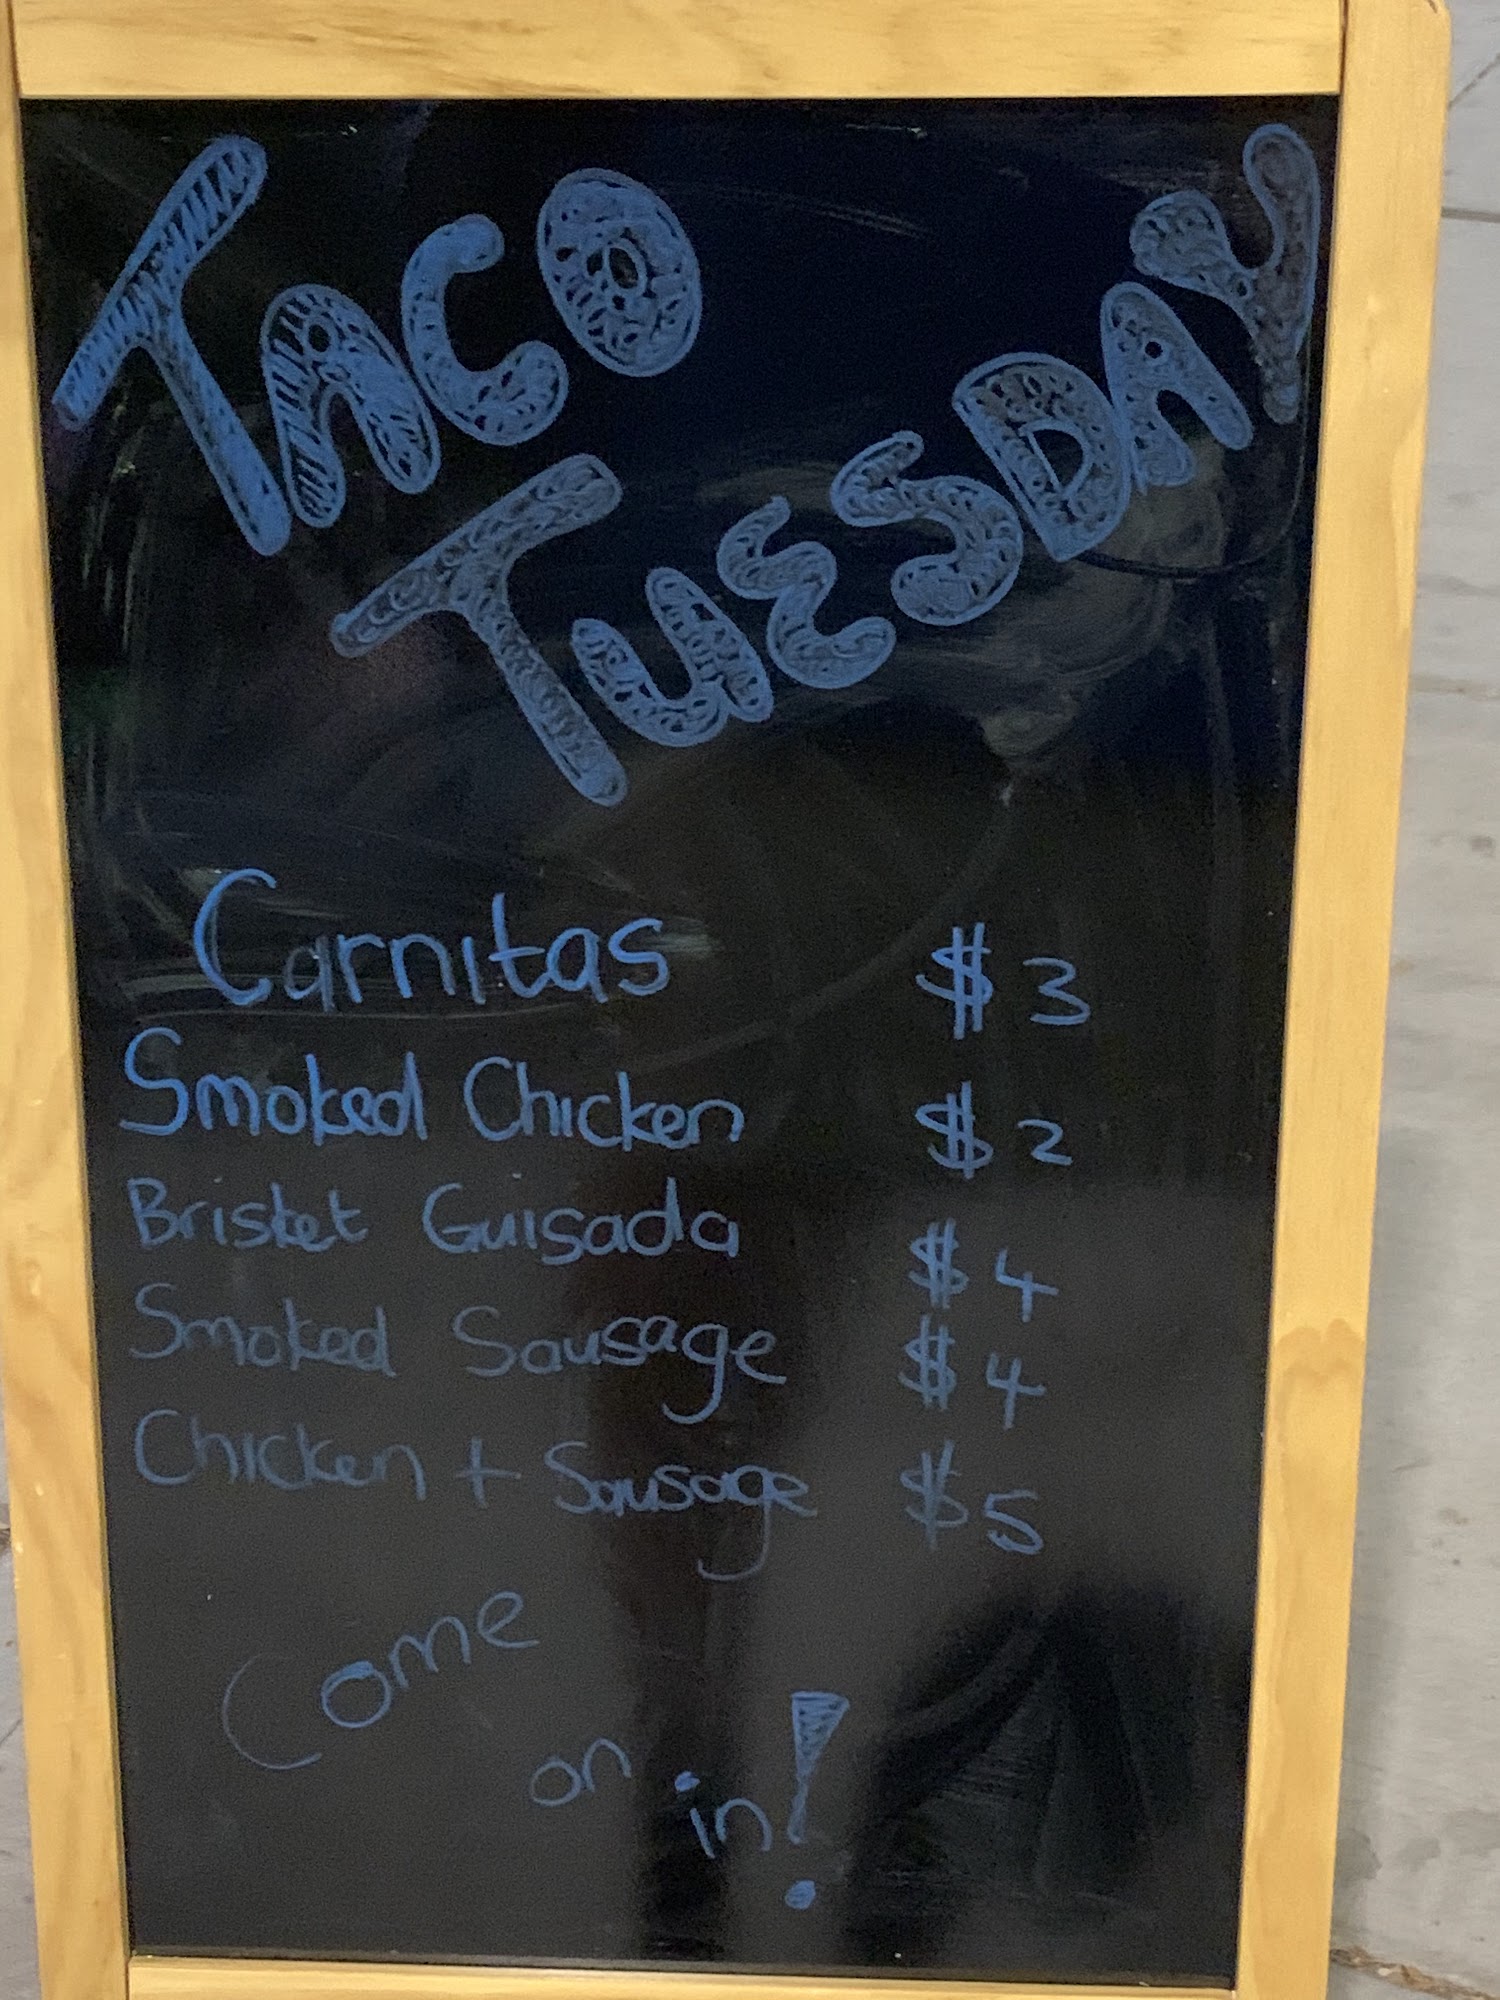 TACO
TUESDAY
Carnitas $3
Smoked Chicken $2
Brisket Guisada $4
Smoked Sausage $4
Chicken + Sausage $5
Come
on
in!